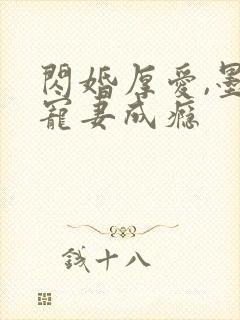 閃婚厚愛,墨
寵妻成癮
錢十八